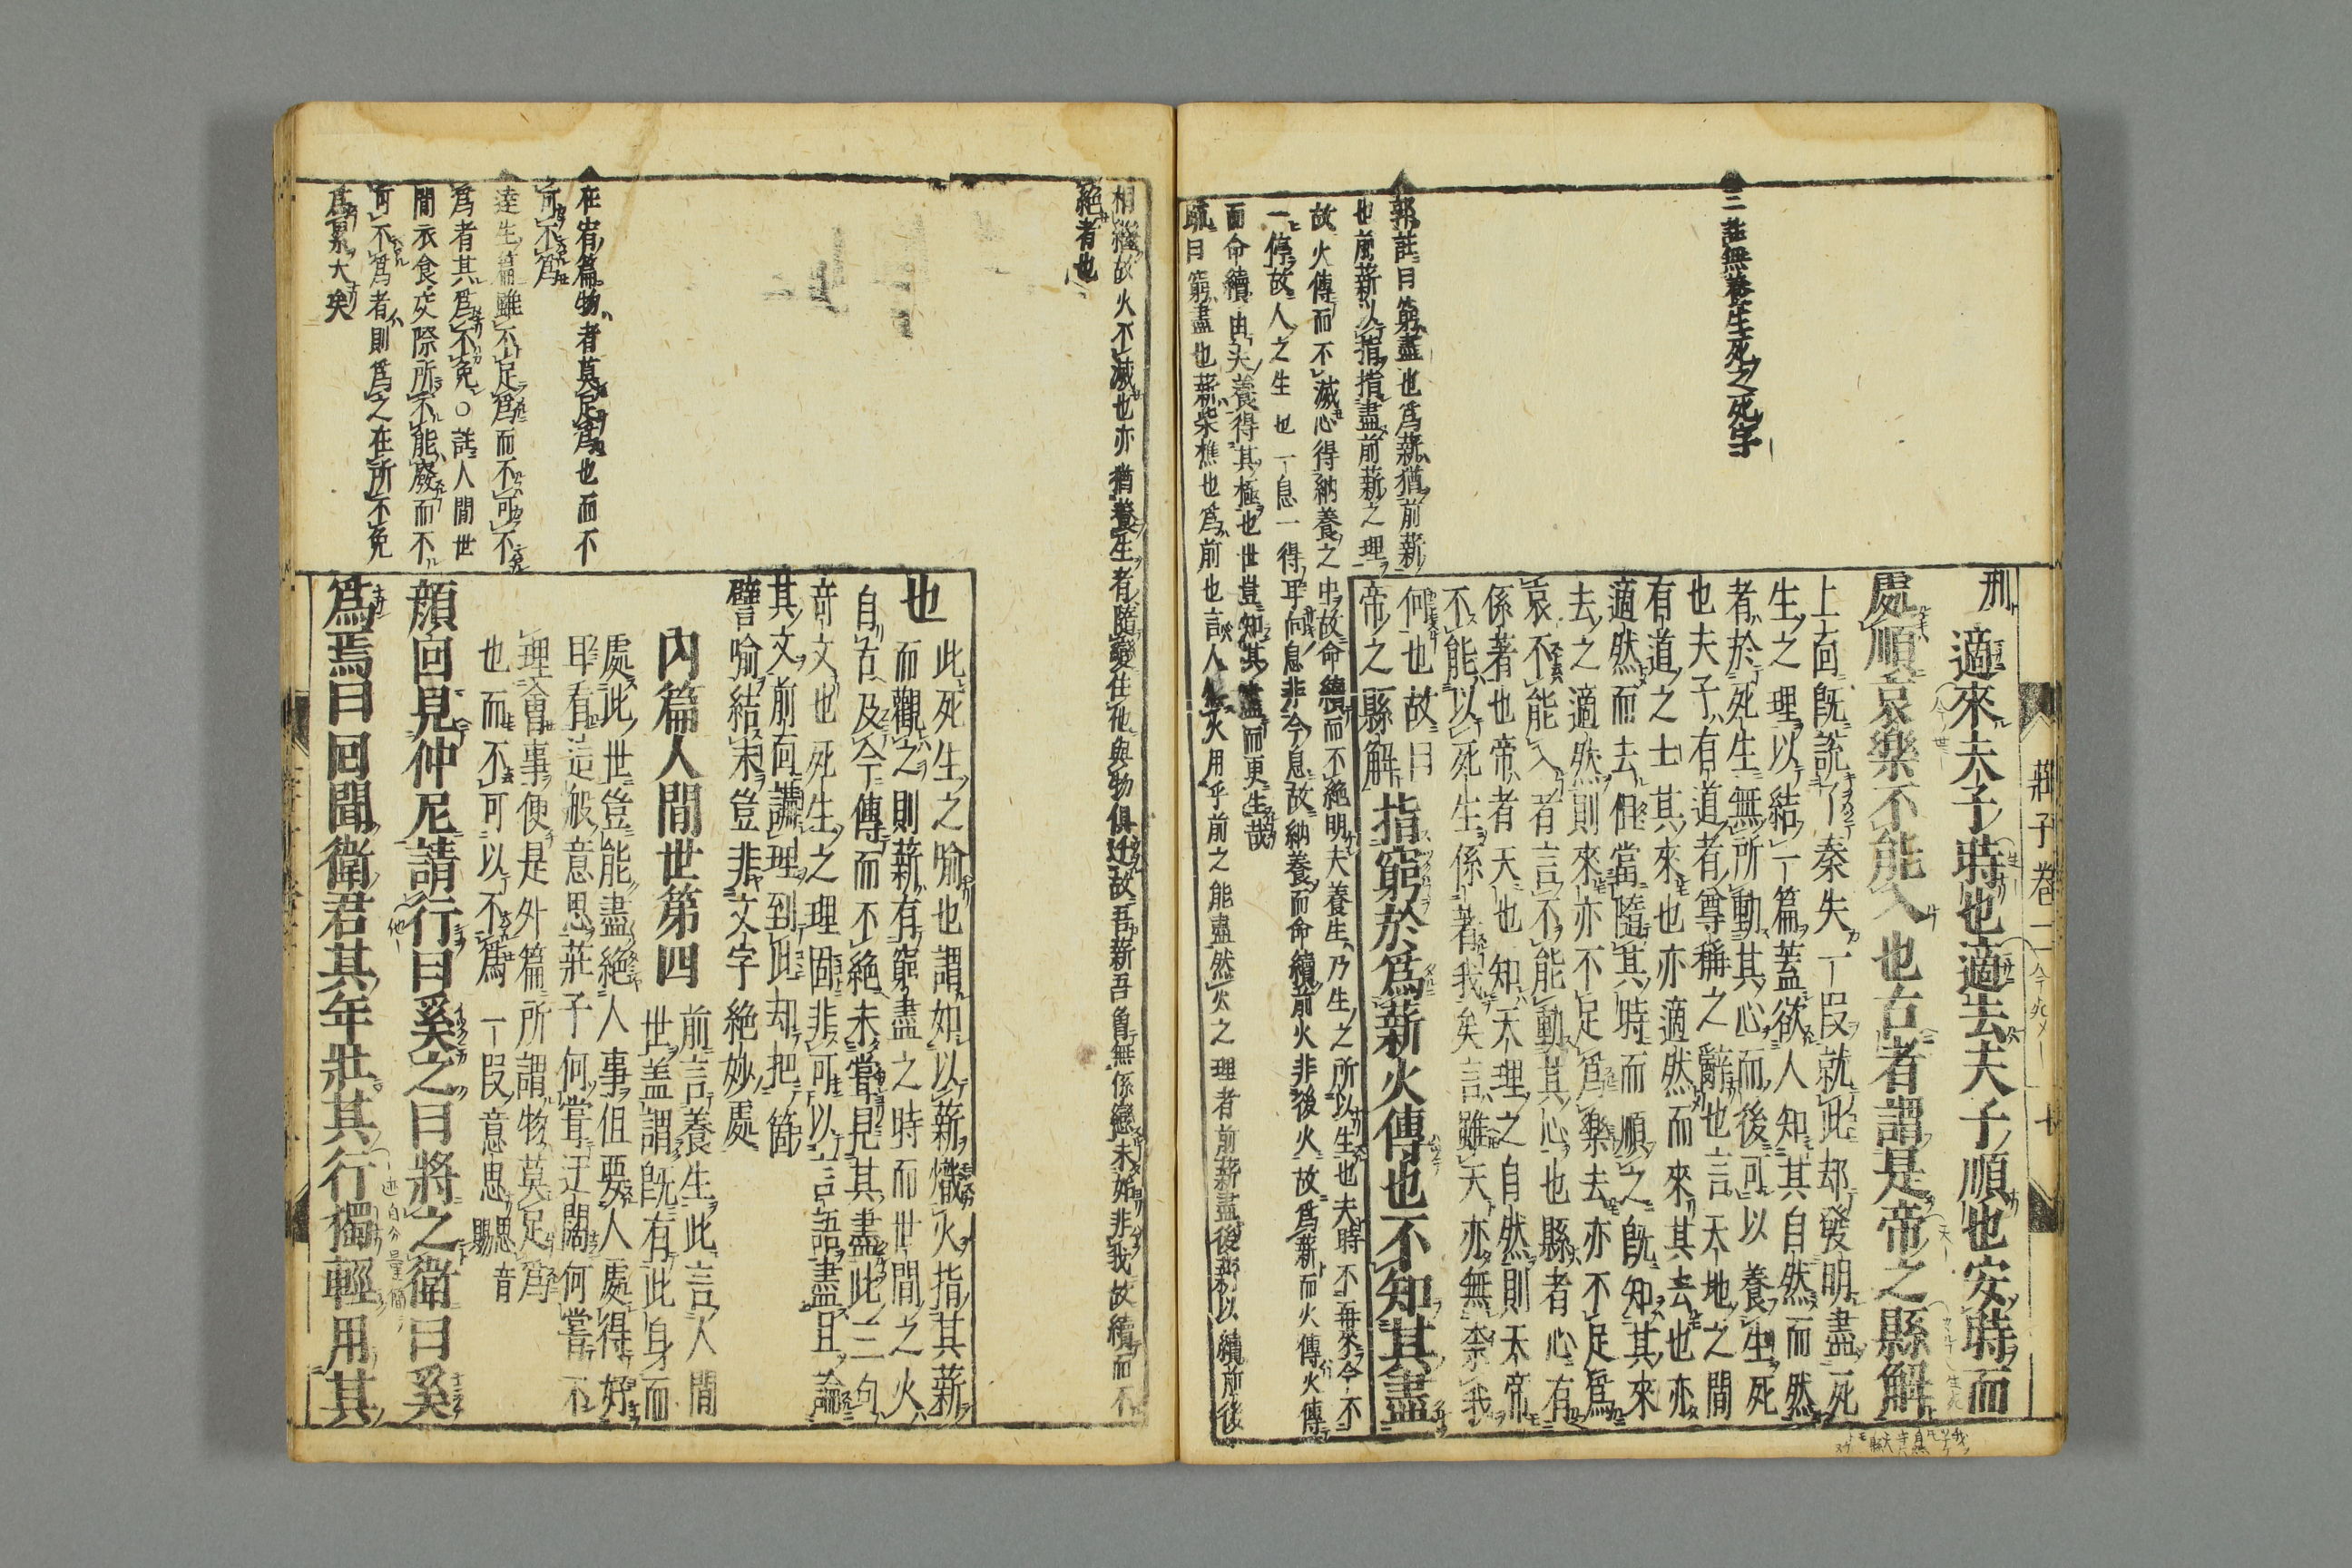 莊子卷二
七
刑適來夫子時也適去夫子順也安時而
處順哀樂不能入也古者謂是帝之縣解
上面既說了秦失一段就此却發明盡死
生之理以結一篇蓋欲人知其自然而然
者於死生無所動其心而後可以養生死
也夫子有道者尊稱之辭也言天地之間
有道之士其來也亦適然而來其去也亦
適然而去但當隨其時而順之既知其來
去之適然則來亦不足爲樂去亦不足爲
哀不能入者言不能動其心也縣者心有
係著也帝者天也知天理之自然則天帝
不能以死生係著我矣言雖天亦無柰我
何也故曰
帝之縣解指窮於爲薪火傳也不知其盡
三註無養生死之死字
郭註曰窮盡也爲薪猶前薪
也前薪以指指盡前薪之理
故火傳而不滅心得納養之中故命續而不絶明夫養生乃生之所以生也夫時不再來今不
一停故人之生也一息一得耳向息非今息故納養而命續前火非後火故爲薪而火傳火傳
而命續由夫養得其極也世豈知其盡而更生哉
疏曰窮盡也薪柴樵也爲前也言人然火用乎前之能盡然火之理者前薪盡後薪以續前後
相繼故火不滅也亦猶養生者隨變任化與物俱遷故吾新吾曾無係戀未始非我故續而不
絶者也
也此死生之喻也謂如以薪熾火指其薪
而觀之則薪有窮盡之時而世間之火
自古及今傳而不絶未嘗見其盡此三句
竒文也死生之理固非可以言語盡且論
其文前面講理到此却把箇
譬喻結末豈非文字絶妙處
內篇人間世第四
前言養生此言人間
世蓋謂既有此身而
處此世豈能盡絶人事但要人處得好
耳看這般意思莊子何嘗迂闊何嘗不
理會事便是外篇所謂物莫足爲
也而不可以不爲一段意思思音賜
顏回見仲尼請行曰奚之曰將之衛曰奚
爲焉曰回聞衛君其年壯其行獨輕用其
在宥篇物者莫足爲也而不
可不爲
達生篇雖不足爲而不可不
爲者其爲不免○註人間世
間衣食交際所不能廢而不
可不爲者則爲之在所不免
爲累大矣